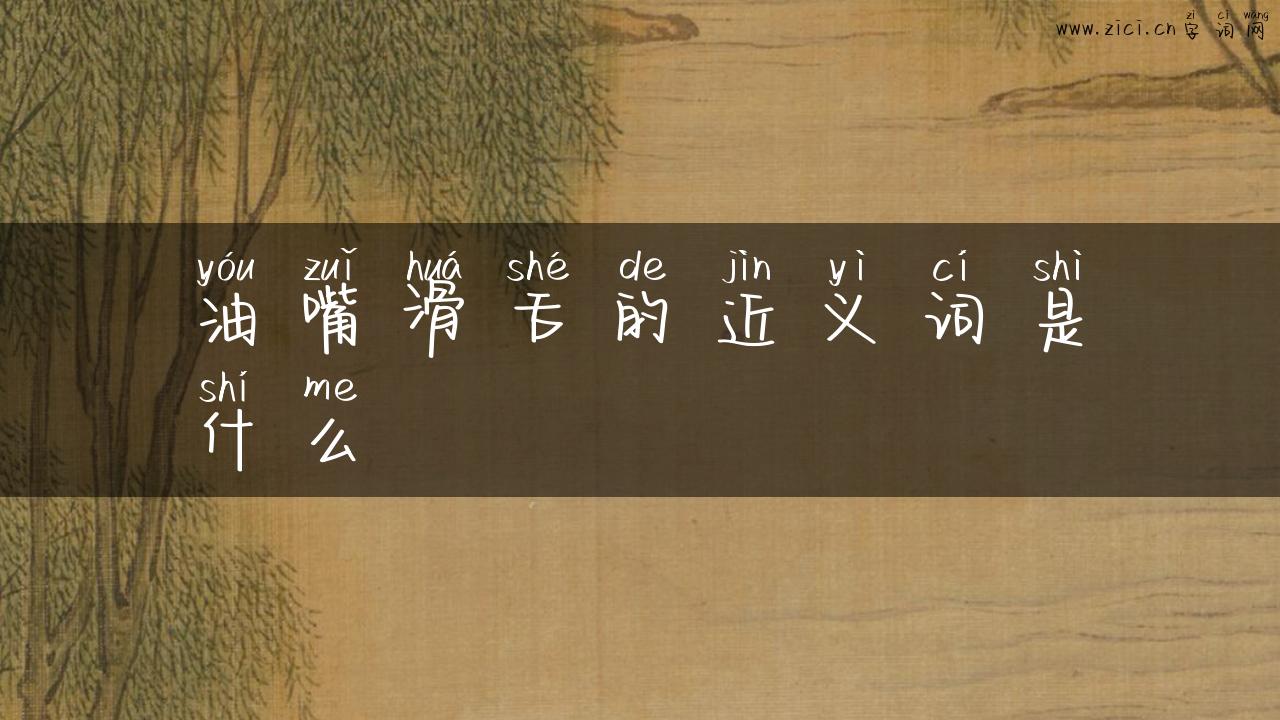 zì cí wǎng
www.zici.cn字词网
yóu zuǐ huá shé de jìn yì cí shì
油嘴滑舌的近义词是
shí me
什么